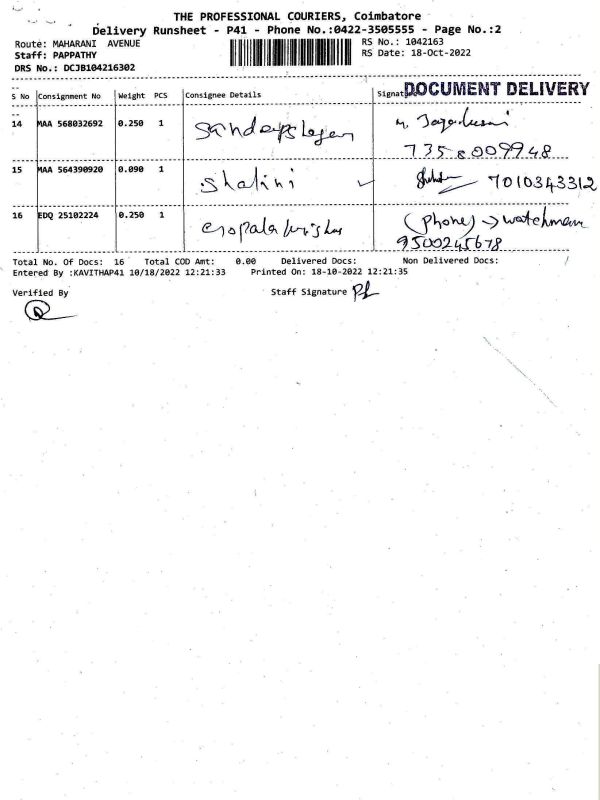 THE PROFESSIONAL COURIERS, Coimbatore
Delivery Runsheet - P41 - Phone No.:0422-3505555 - Page No.:2
Route: MAHARANI AVENUE RS No.: 1042163
Staff: PAPPATHY RS Date: 18-Oct-2022
DRS No.: DCJB104216302
DOCUMENT DELIVERY
S No Consignment No Weight PCS Consignee Details Signat
14 MAA 568032692 0.250 1
7358009948
15 MAA 564390920 0.090 1 Shalini 7010343312
16 EDQ 25102224 0.250 1 (Phone) → watchman
9500245678
Total No. Of Docs: 16 Total COD Amt: 0.00 Delivered Docs: Non Delivered Docs:
Entered By :KAVITHAP41 10/18/2022 12:21:33 Printed On: 18-10-2022 12:21:35
Verified By Staff Signature